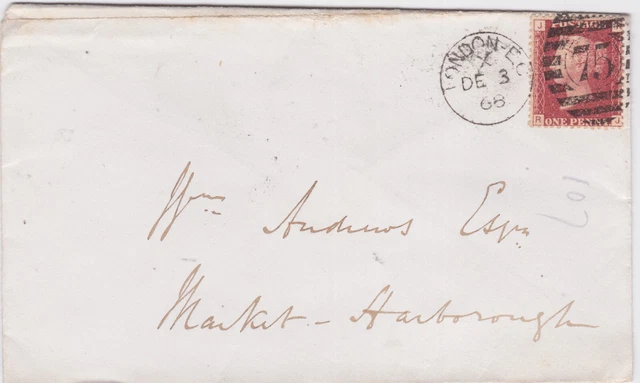 J R
POSTAGE
LONDON-E.C
DE 3
68
75
R ONE PENNY J
Wm Andrews Esqre
107
Market - Harborough